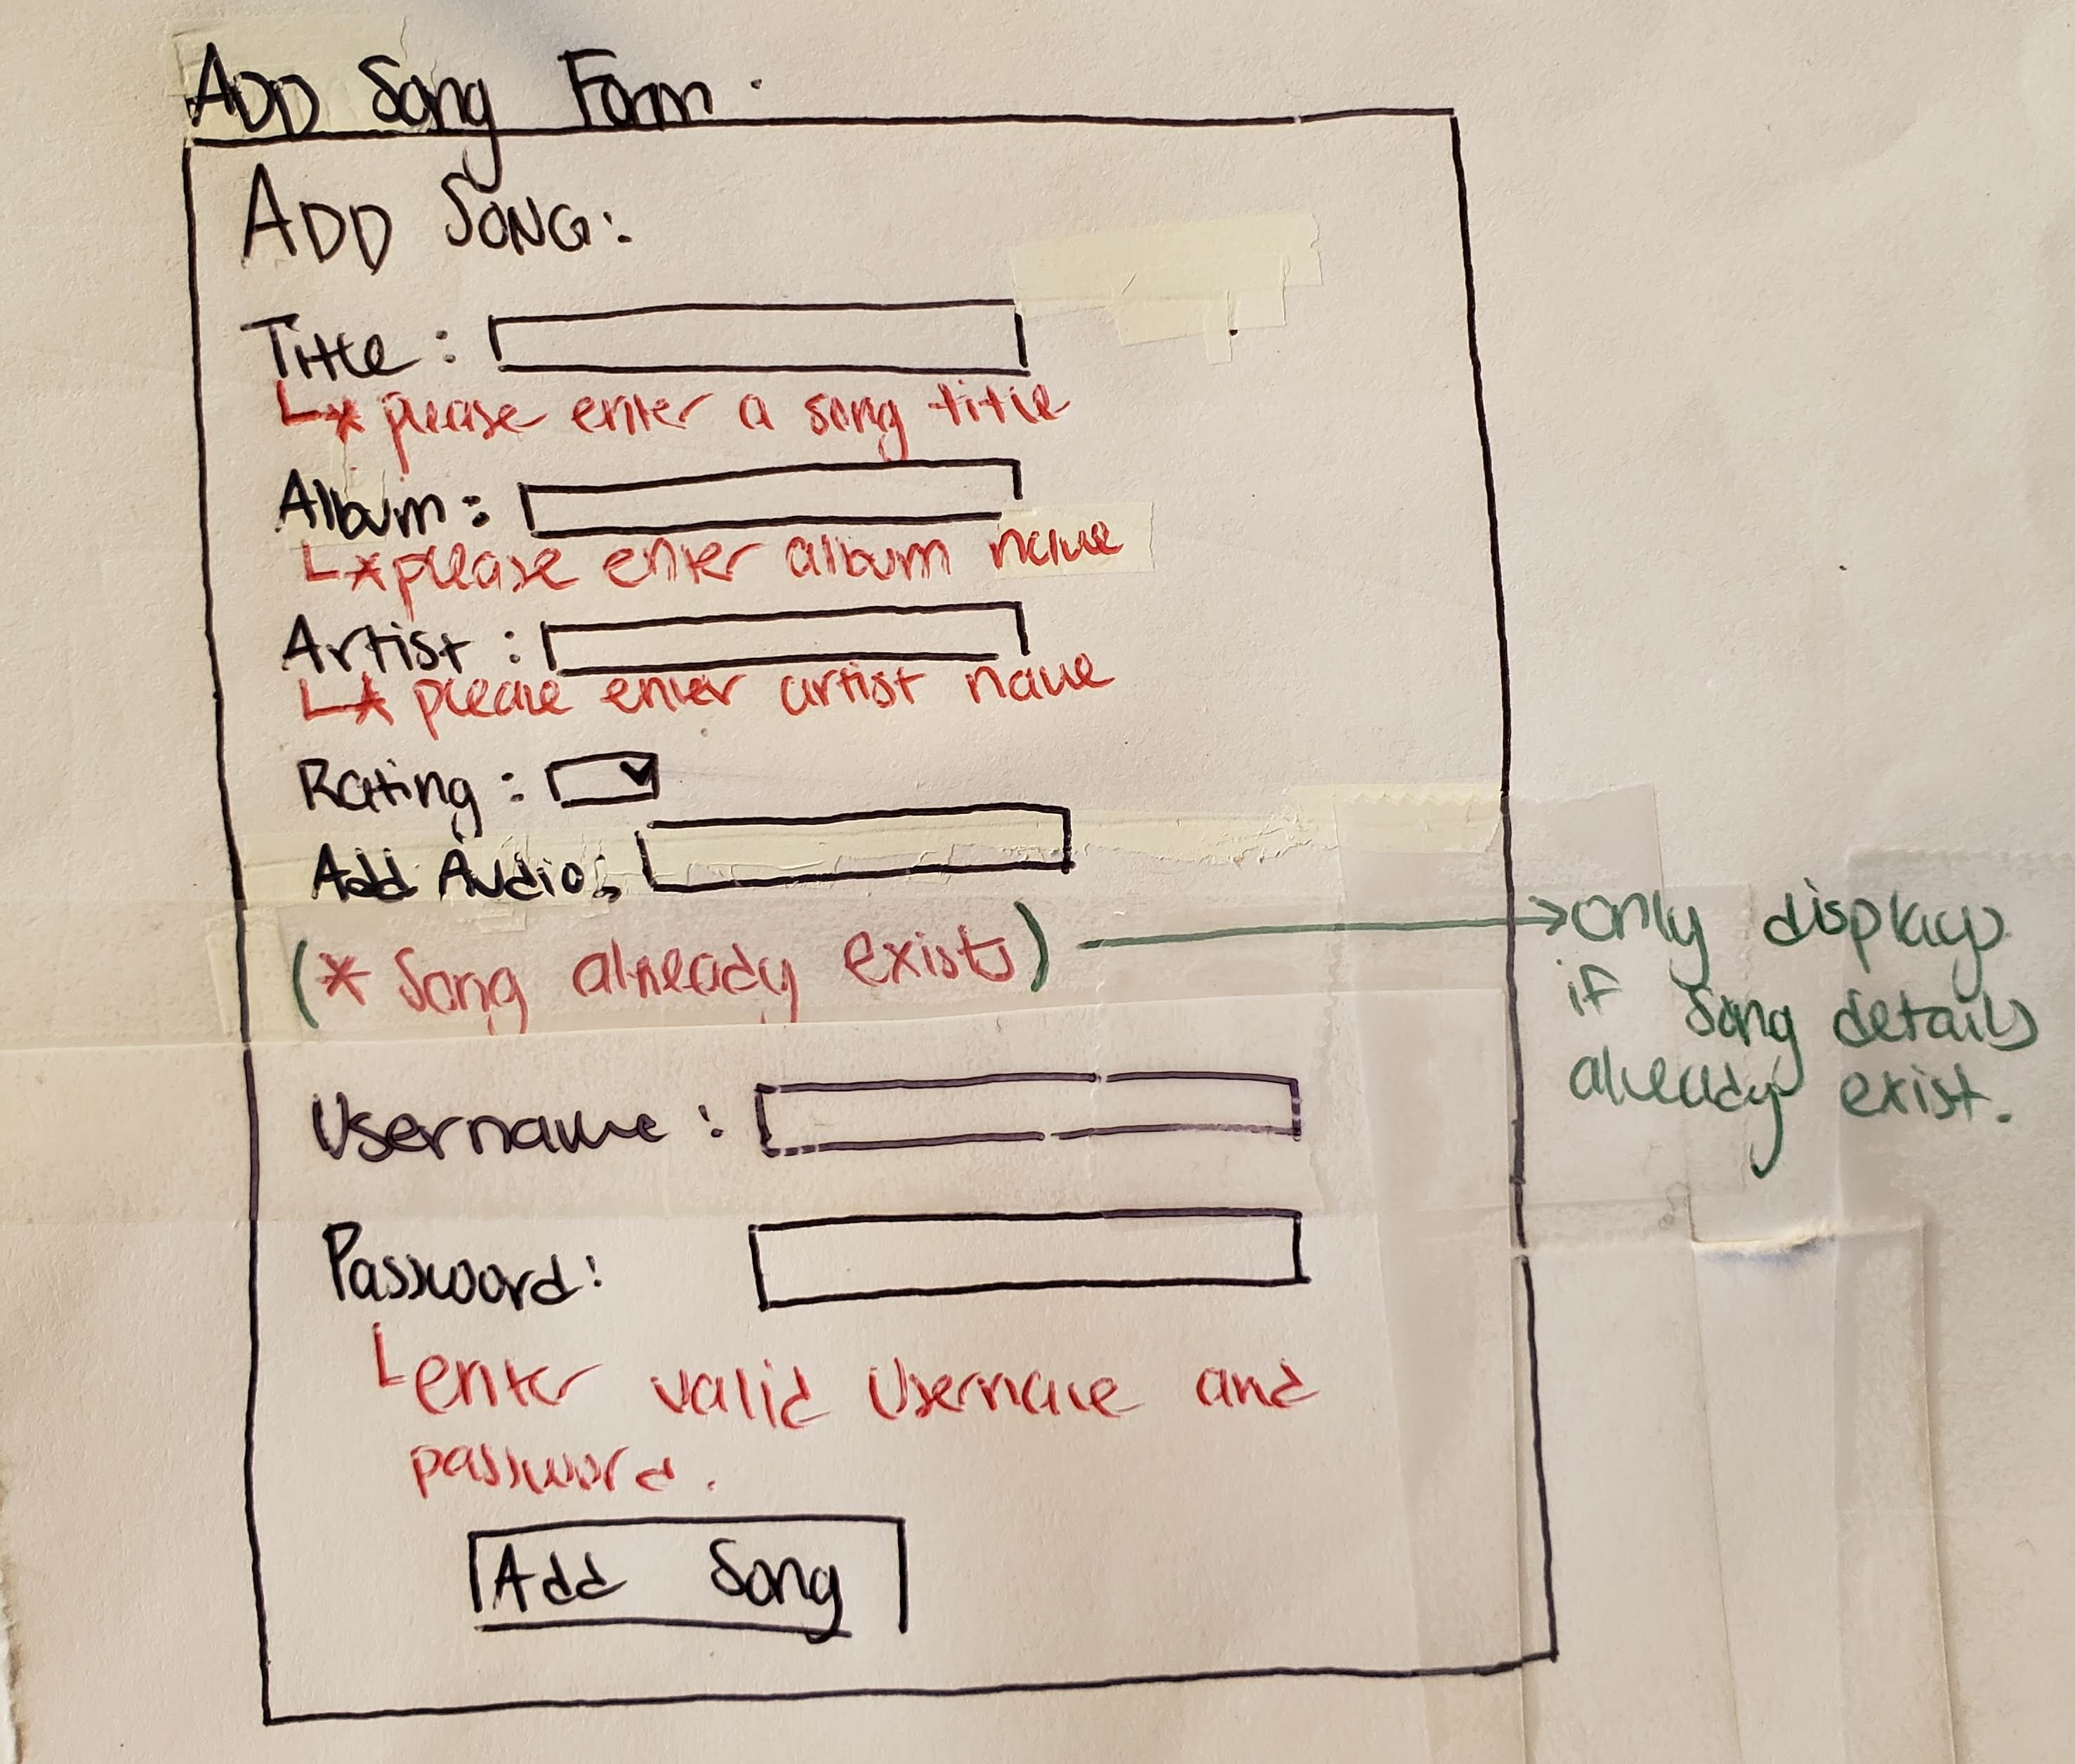 ADD Song Form.
ADD SONG:
Title:
* please enter a song title
Album:
* please enter album name
Artist:
* please enter artist name
Rating:
Add Audio:
(* Song already exists)
only displays
if song details
already exist.
Username:
Password:
enter valid username and
password.
Add Song